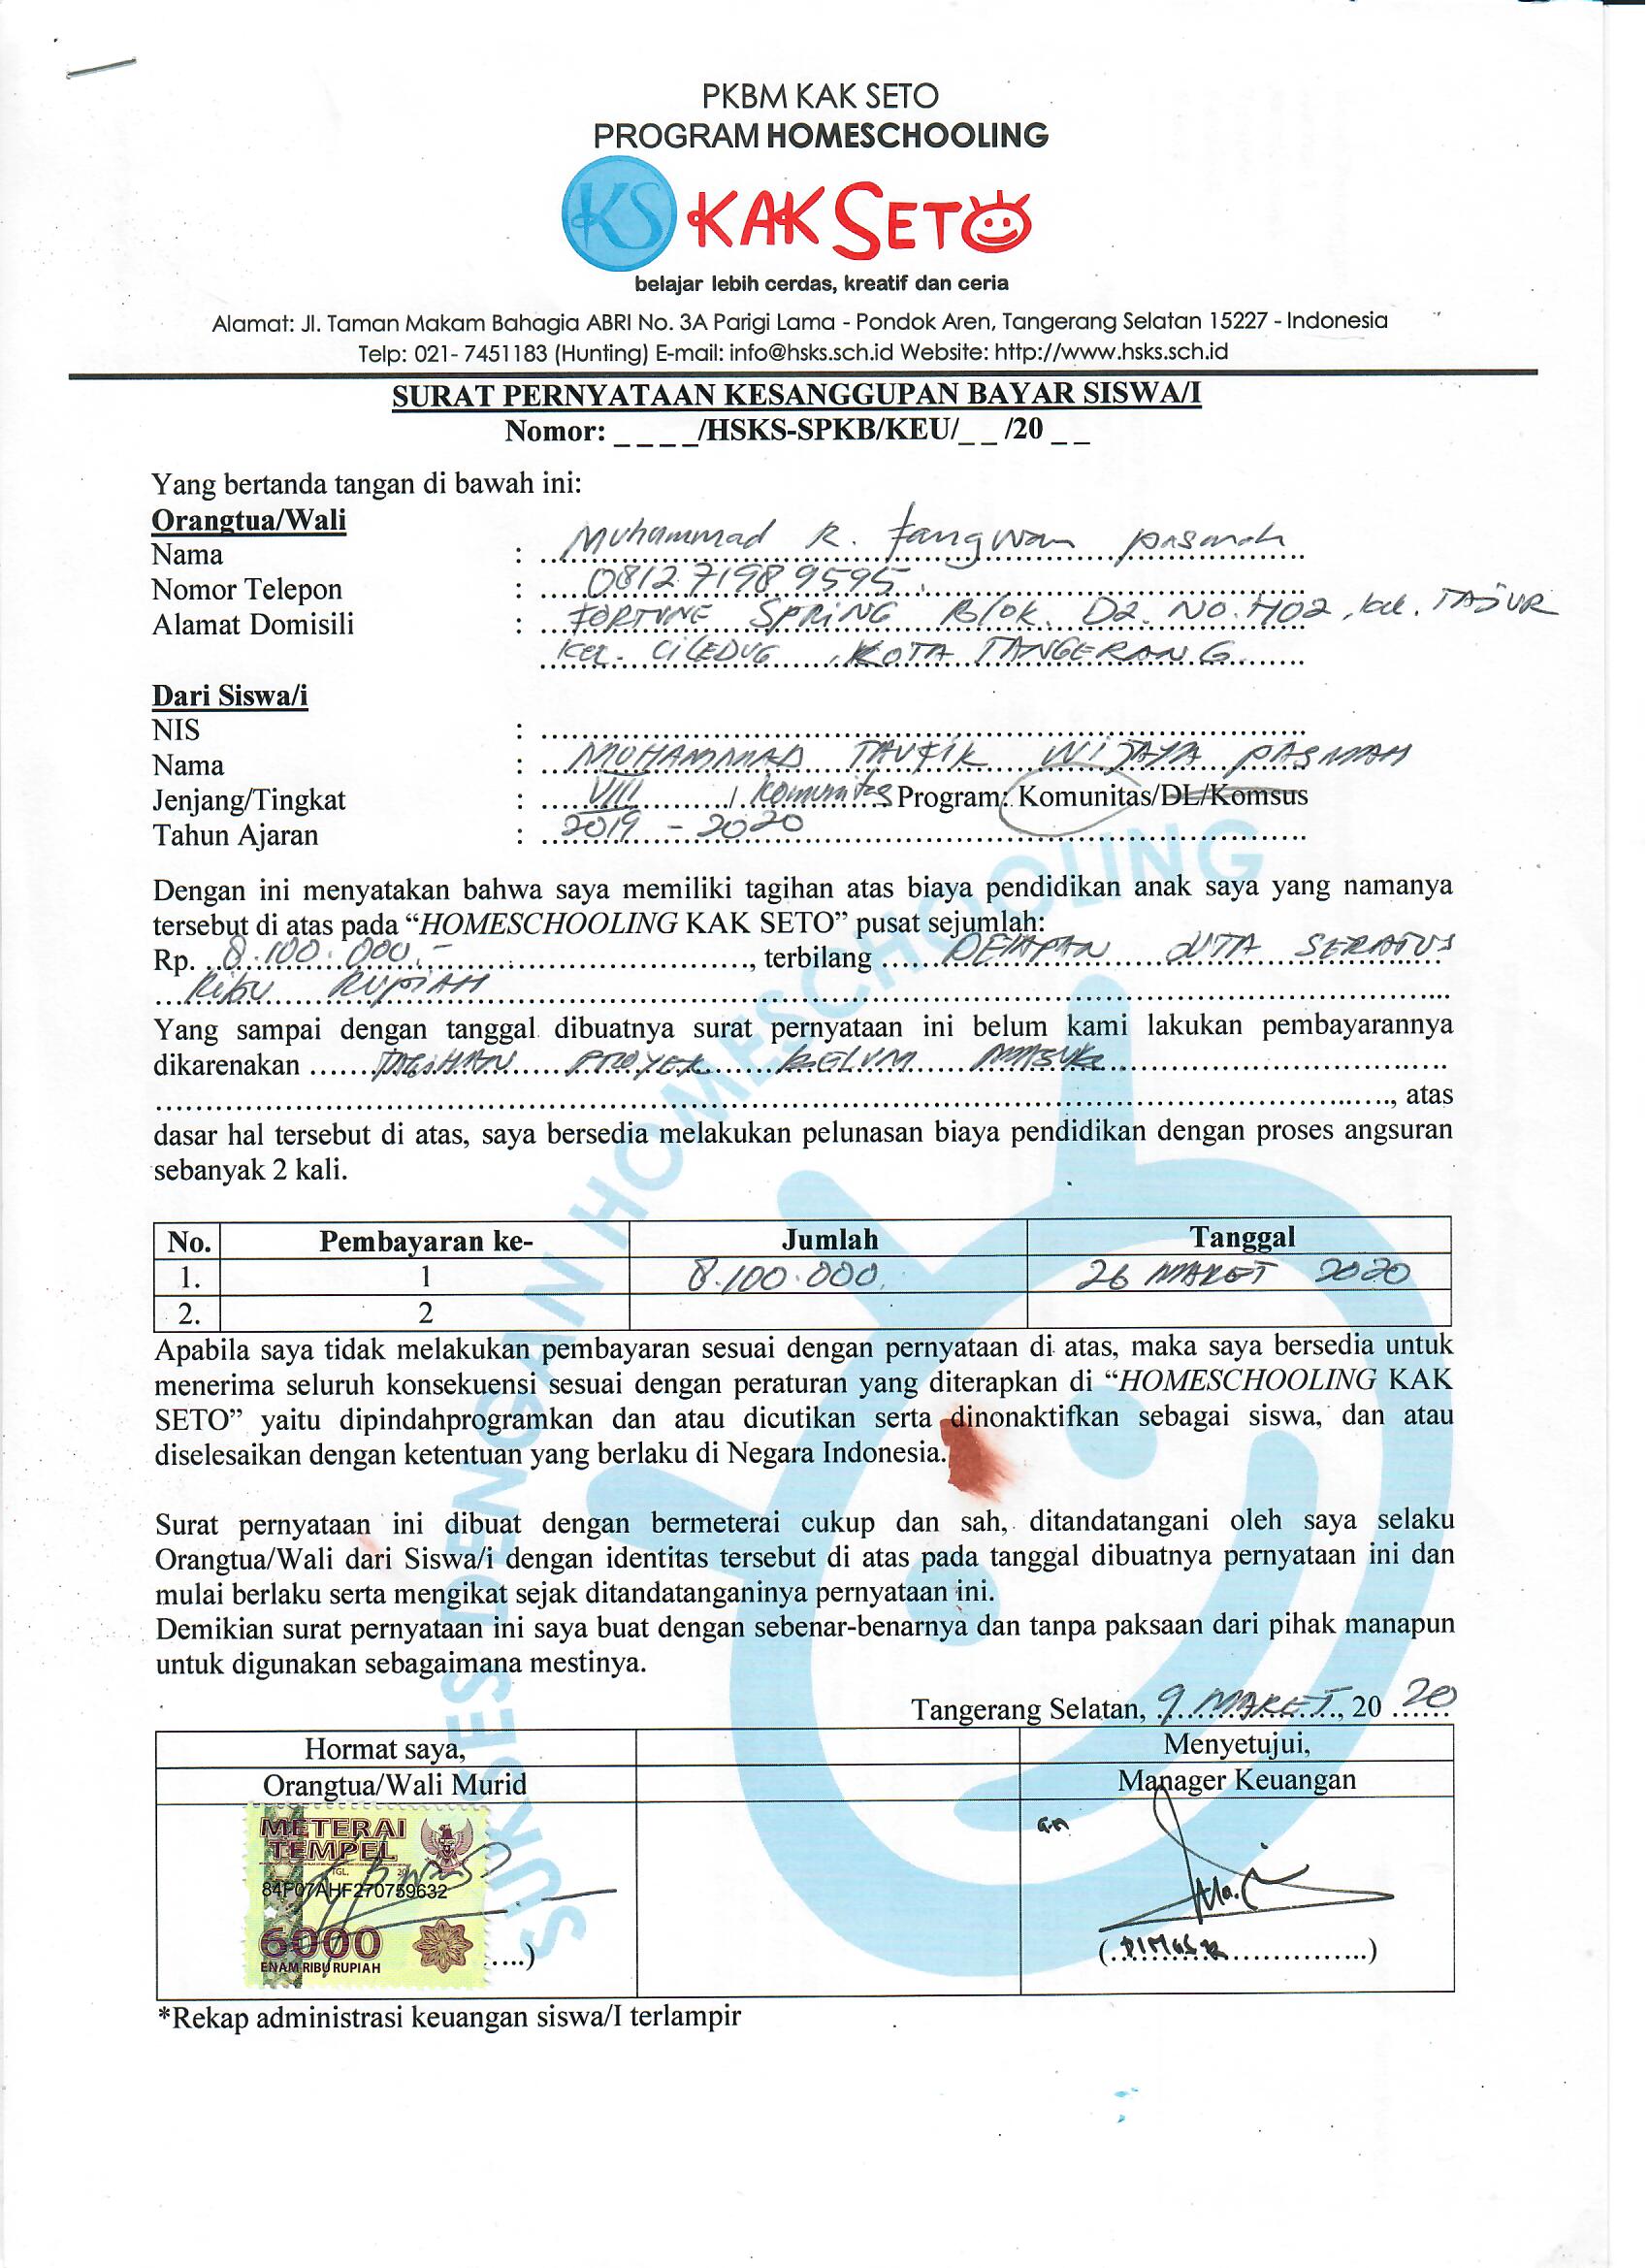 PKBM KAK SETO
PROGRAM HOMESCHOOLING
KS KAK SETO
belajar lebih cerdas, kreatif dan ceria
Alamat: Jl. Taman Makam Bahagia ABRI No. 3A Parigi Lama - Pondok Aren, Tangerang Selatan 15227 - Indonesia
Telp: 021- 7451183 (Hunting) E-mail: info@hsks.sch.id Website: http://www.hsks.sch.id
SURAT PERNYATAAN KESANGGUPAN BAYAR SISWA/I
Nomor: _ _ _ _/HSKS-SPKB/KEU/_ _ /20 _ _
Yang bertanda tangan di bawah ini:
Orangtua/Wali
Nama : Muhammad R. pasmah
Nomor Telepon : 081271989595
Alamat Domisili : FORTUNE SPRING Blok. D2. No. , kel. TAJUR
kec. CILEDUG , KOTA TANGERANG
Dari Siswa/i
NIS :
Nama : MUHAMMAD TAUFIK WIJAYA PASMAH
Jenjang/Tingkat : VIII / komunitas Program: Komunitas/DL/Komsus
Tahun Ajaran : 2019 - 2020
Dengan ini menyatakan bahwa saya memiliki tagihan atas biaya pendidikan anak saya yang namanya
tersebut di atas pada “HOMESCHOOLING KAK SETO” pusat sejumlah:
Rp. 8.100.000,- , terbilang DELAPAN JUTA SERATUS
RIBU RUPIAH
Yang sampai dengan tanggal dibuatnya surat pernyataan ini belum kami lakukan pembayarannya
dikarenakan TAGIHAN PROYEK BELUM MASUK
, atas
dasar hal tersebut di atas, saya bersedia melakukan pelunasan biaya pendidikan dengan proses angsuran
sebanyak 2 kali.
No. Pembayaran ke- Jumlah Tanggal
1. 1 8.100.000, 26 MARET 2020
2. 2
Apabila saya tidak melakukan pembayaran sesuai dengan pernyataan di atas, maka saya bersedia untuk
menerima seluruh konsekuensi sesuai dengan peraturan yang diterapkan di “HOMESCHOOLING KAK
SETO” yaitu dipindahprogramkan dan atau dicutikan serta dinonaktifkan sebagai siswa, dan atau
diselesaikan dengan ketentuan yang berlaku di Negara Indonesia.
Surat pernyataan ini dibuat dengan bermeterai cukup dan sah, ditandatangani oleh saya selaku
Orangtua/Wali dari Siswa/i dengan identitas tersebut di atas pada tanggal dibuatnya pernyataan ini dan
mulai berlaku serta mengikat sejak ditandatanganinya pernyataan ini.
Demikian surat pernyataan ini saya buat dengan sebenar-benarnya dan tanpa paksaan dari pihak manapun
untuk digunakan sebagaimana mestinya.
Tangerang Selatan, 9 MARET, 20 20
Hormat saya, Menyetujui,
Orangtua/Wali Murid Manager Keuangan
an
METERAI
TEMPEL
TGL. 20
84F07AHF270759632
6000
ENAM RIBU RUPIAH
(DIMAS R)
*Rekap administrasi keuangan siswa/I terlampir
SUKSES DENGAN HOMESCHOOLING